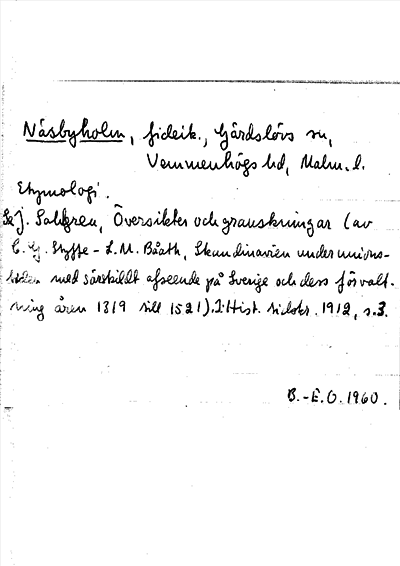 Näsbyholm, fideik., Gärdslövs sn,
Vemmenhögs hd, Malm. l.
Etymologi.
Se J. Sahlgren, Översikter och granskningar (av
C. G. Styffe - L. M. Bååth, Skandinavien under unions-
tiden med särskildt afseende på Sverige och dess förvalt-
ning åren 1319 till 1521). I: Hist. tidskr. 1912, s. 3.
B.-E.O. 1960.